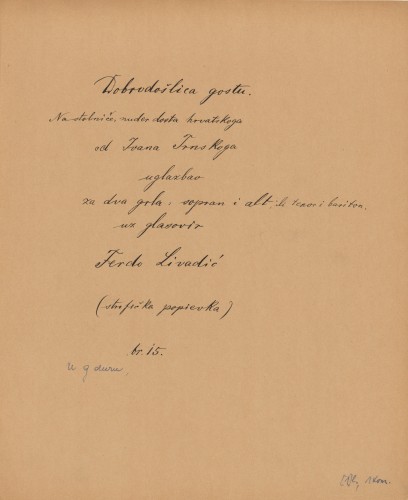 Dobrodošlica gostu.
Na dobniče, nuder dosta hrvatskoga
od Ivana Trnskoga
uglazbao
za dva grla, sopran i alt ili tenor i bariton.
uz glasovir
Ferdo Livadić
(strofička popievka)
br. 15.
U g duru,